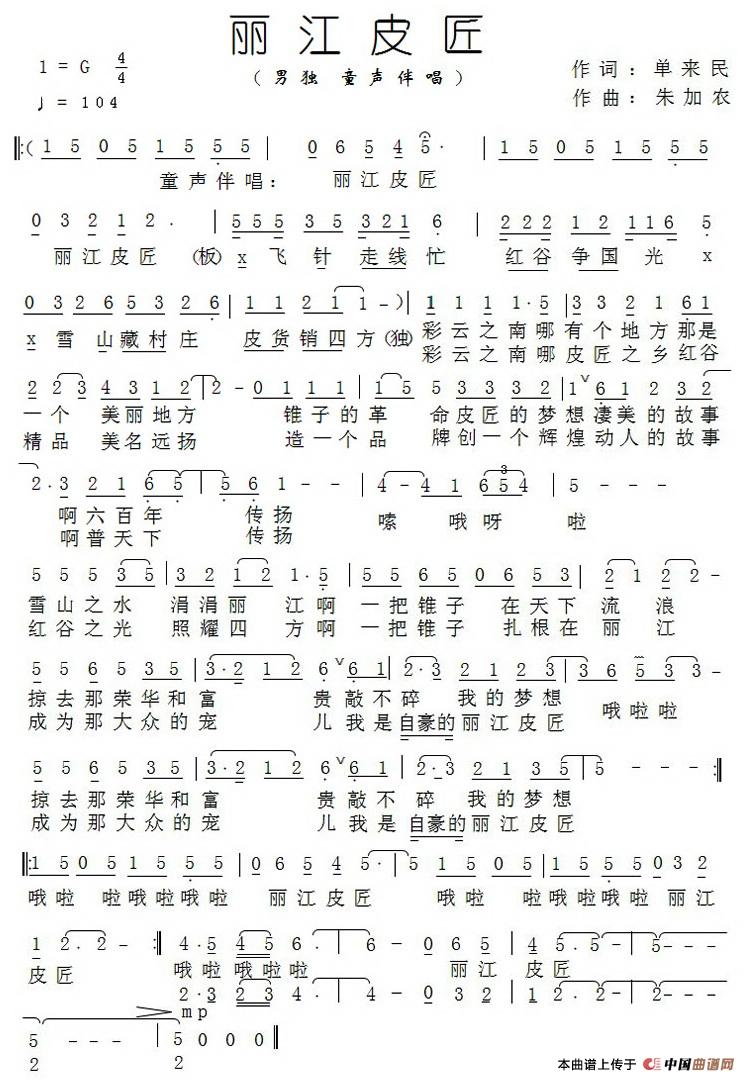 丽江皮匠
1 = G 4/4
（男独 童声伴唱）
作词：单来民
♩= 104
作曲：朱加农
‖:( 1 5 0 5 1 5 5 5 | 0 6 5 4 5· | 1 5 0 5 1 5 5 5
童声伴唱： 丽江皮匠
0 3 2 1 2· | 5 5 5 3 5 3 2 1 6 | 2 2 2 1 2 1 1 6 5
丽江皮匠 (板) x 飞针走线忙 红谷争国光 x
0 3 2 6 5 3 2 6 | 1 1 2 1 1 - ) | 1 1 1 1·5 | 3 3 2 1 6 1
x 雪山藏村庄 皮货销四方 (独) 彩云之南哪有个地方那是
彩云之南哪皮匠之乡红谷
2 2 3 4 3 1 2 | 2 - 0 1 1 1 | 1 5 5 3 3 3 2 | 1 ∨ 6 1 2 3 2
一个 美丽地方 锥子的革 命皮匠的梦想凄美的故事
精品 美名远扬 造一个品 牌创一个辉煌动人的故事
2·3 2 1 6 5 | 5 5 6 1 - - | 4 - 4 1 6 5 4 | 5 - - -
3
啊六百年 传扬 嗦 哦呀 啦
啊普天下 传扬
5 5 5 3 5 | 3 2 1 2 1·5 | 5 5 6 5 0 6 5 3 | 2 1 2 -
雪山之水 涓涓丽 江啊 一把锥子 在天下 流浪
红谷之光 照耀四 方啊 一把锥子 扎根在 丽江
5 5 6 5 3 5 | 3·2 1 2 6 ∨ 6 1 | 2·3 2 1 2 1 3 | 5 6 5 3 3 -
掠去那荣华和富 贵敲不碎 我的梦想 哦啦啦
成为那大众的宠 儿我是自豪的丽江皮匠
5 5 6 5 3 5 | 3·2 1 2 6 ∨ 6 1 | 2·3 2 1 3 5 | 5 - - - :‖
掠去那荣华和富 贵敲不碎 我的梦想
成为那大众的宠 儿我是自豪的丽江皮匠
‖: 1 5 0 5 1 5 5 5 | 0 6 5 4 5· | 5 1 5 0 5 | 1 5 5 5 0 3 2
哦啦 啦哦啦哦啦 丽江皮匠 哦啦 啦哦啦哦啦 丽江
1 2· 2 - :‖ 4·5 4 5 6 - | 6 - 0 6 5 | 4 5· 5 - | 5 - - -
皮匠 哦啦哦啦啦 丽江 皮匠
2·3 2 3 4 - | 4 - 0 4 3 | 2 2· 2 - | 2 - - -
mp
5 - - - | 5 0 0 0 ‖
2 2
本曲谱上传于 中国曲谱网